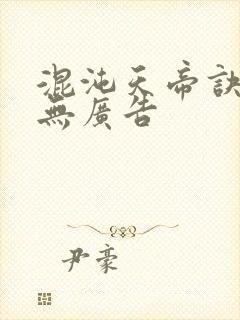 混沌天帝訣
無廣告
尹豪